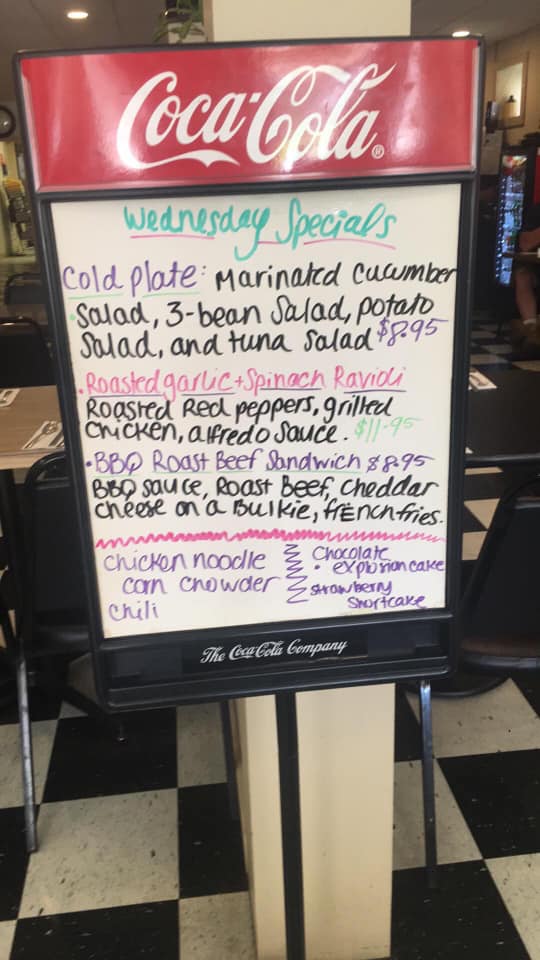 Coca-Cola®
Wednesday Specials
Cold Plate: Marinated Cucumber
Salad, 3-bean Salad, potato
Salad, and tuna Salad $8.95
• Roasted garlic + Spinach Ravioli
Roasted Red peppers, grilled
chicken, alfredo sauce. $11.95
• BBQ Roast Beef Sandwich $8.95
BBQ sauce, Roast Beef, cheddar
cheese on a Bulkie, french fries.
Chicken noodle
corn chowder
Chili
Chocolate
• explosion cake
strawberry
Shortcake
The Coca-Cola Company